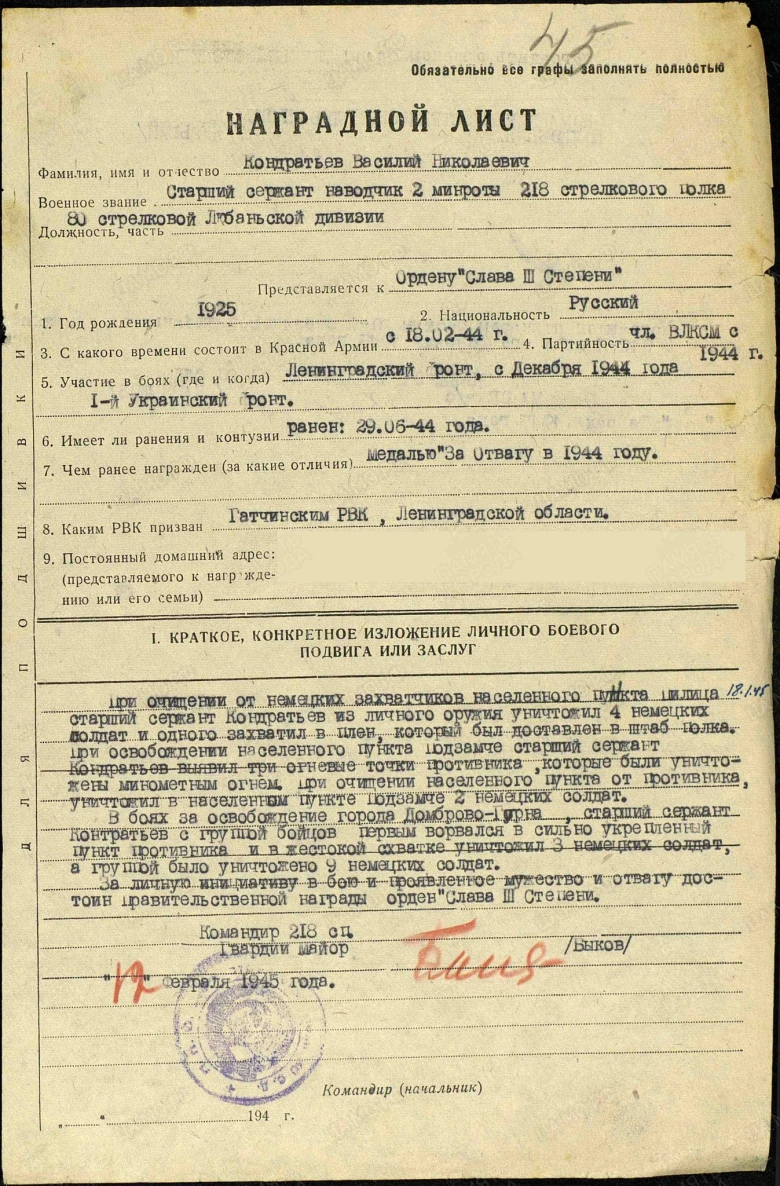 45
Обязательно все графы заполнять полностью
НАГРАДНОЙ ЛИСТ
Фамилия, имя и отчество Кондратьев Василий Николаевич
Военное звание Старший сержант наводчик 2 минроты 218 стрелкового полка
80 стрелковой Любаньской дивизии
Должность, часть
Представляется к Ордену"Слава III Степени"
1. Год рождения 1925 2. Национальность Русский
3. С какого времени состоит в Красной Армии с 18.02-44 г. 4. Партийность чл. ВЛКСМ с
1944 г.
5. Участие в боях (где и когда) Ленинградский фронт, с Декабря 1944 года
I-й Украинский фронт.
6. Имеет ли ранения и контузии ранен: 29.06-44 года.
7. Чем ранее награжден (за какие отличия) Медалью"За Отвагу в 1944 году.
8. Каким РВК призван Гатчинским РВК , Ленинградской области.
9. Постоянный домашний адрес:
(представляемого к награжде-
нию или его семьи)
ДЛЯ ПОДШИВКИ
I. КРАТКОЕ, КОНКРЕТНОЕ ИЗЛОЖЕНИЕ ЛИЧНОГО БОЕВОГО
ПОДВИГА ИЛИ ЗАСЛУГ
При очищении от немецких захватчиков населенного пункта Пилица 18.1.45
старший сержант Кондратьев из личного оружия уничтожил 4 немецких
солдат и одного захватил в плен, который был доставлен в штаб полка.
При освобождении населенного пункта Подзамче старший сержант
Кондратьев выявил три огневые точки противника ,которые были уничто-
жены минометным огнем. При очищении населенного пункта от противника,
уничтожил в населенном пункте Подзамче 2 немецких солдат.
В боях за освобождение города Домброво-Гурна , старший сержант
Контратьев с группой бойцов первым ворвался в сильно укрепленный
пункт противника и в жестокой схватке уничтожил 3 немецких солдат,
а группой было уничтожено 9 немецких солдат.
За личную инициативу в бою и проявленное мужество и отвагу дос-
тоин Правительственной награды орден"Слава III Степени.
Командир 218 сп.
Гвардии майор /Быков/
"12" Февраля 1945 года.
Командир (начальник)
„ “ 194 г.